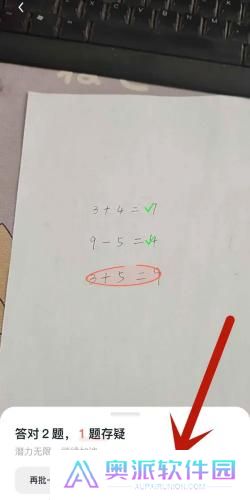 3+4=7
9-5=4
3+5=9
答对2题，1题存疑
潜力无限
再批一
奥派软件园